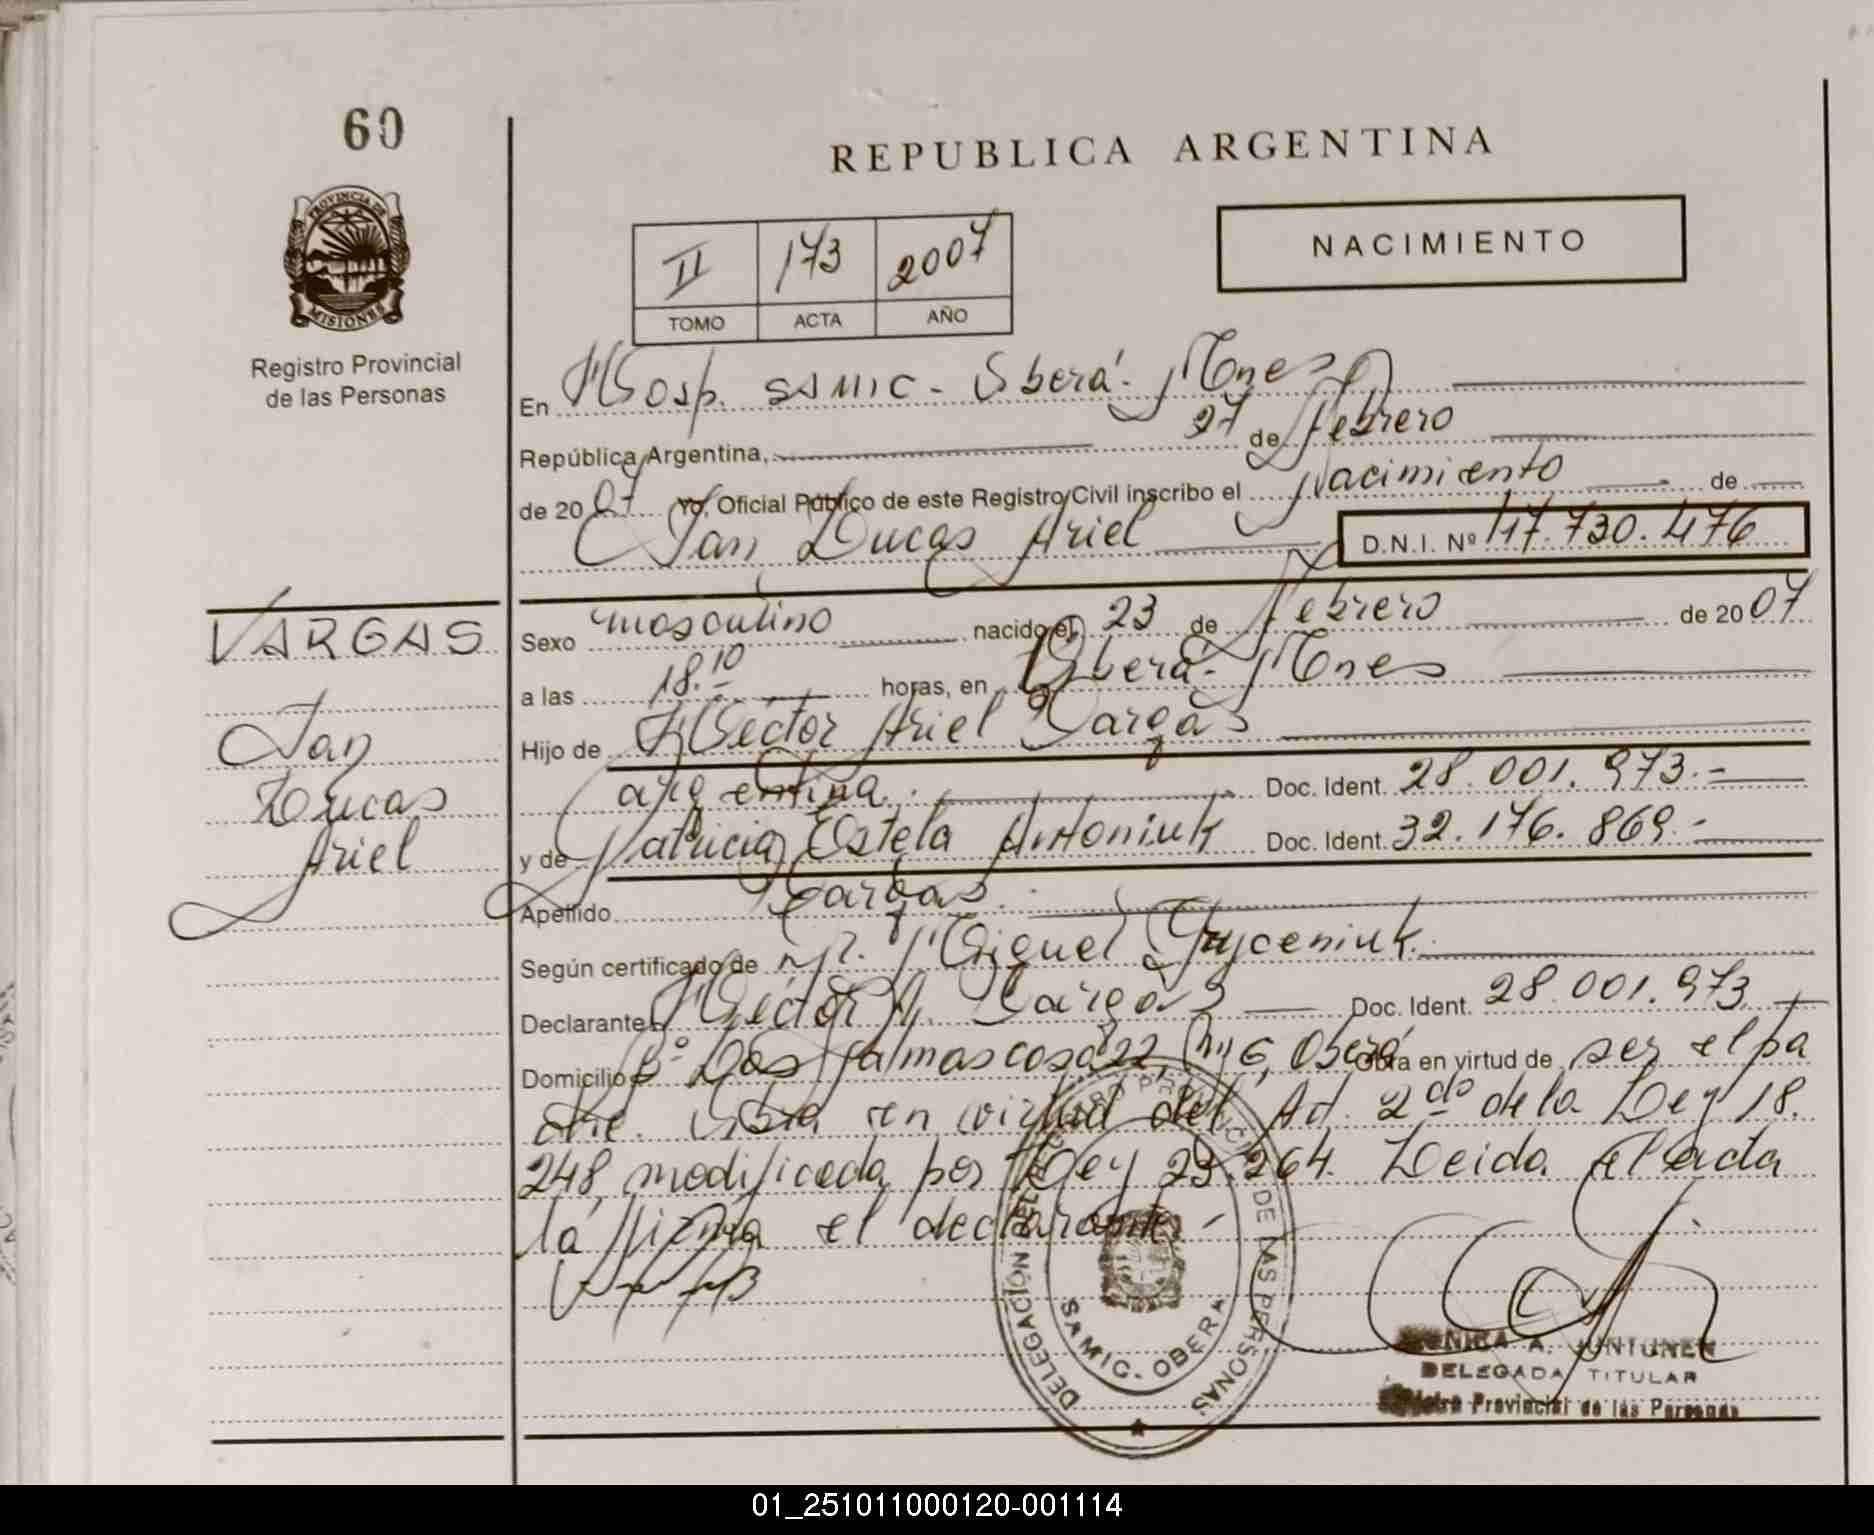 60
PROVINCIA DE
MISIONES
Registro Provincial
de las Personas
REPUBLICA ARGENTINA
NACIMIENTO
II 173 2007
TOMO ACTA AÑO
En Hosp. SAMIC - Oberá - Mnes
República Argentina, 27 de febrero
de 2007 Yo, Oficial Público de este Registro Civil inscribo el Nacimiento de
Jan Lucas Ariel D.N.I. Nº 47.730.476
VARGAS
Jan
Lucas
Ariel
Sexo masculino nacido el 23 de febrero de 2007
a las 18.10 horas, en Oberá - Mnes
Hijo de Héctor Ariel Vargas
argentina. Doc. Ident. 28.001.973.-
y de Patricia Estela Antoniuk Doc. Ident. 32.176.869.-
Apellido Vargas.
Según certificado de Dr. Miguel Gryceniuk.
Declarante Héctor A. Vargas Doc. Ident. 28.001.973
Domicilio Bº Dos Palmas casa 22, 6, Oberá Obra en virtud de ser el pa
dre. Obra en virtud del Art. 2do de la Ley 18.
248, modificada por Ley 23.264. Leida el acta
la firma el declarante.-
DELEGACIÓN DEL REGISTRO PROVINCIAL DE LAS PERSONAS
SAMIC. OBERA
MONICA A. JUNTUNEN
DELEGADA TITULAR
Registro Provincial de las Personas
01_251011000120-001114